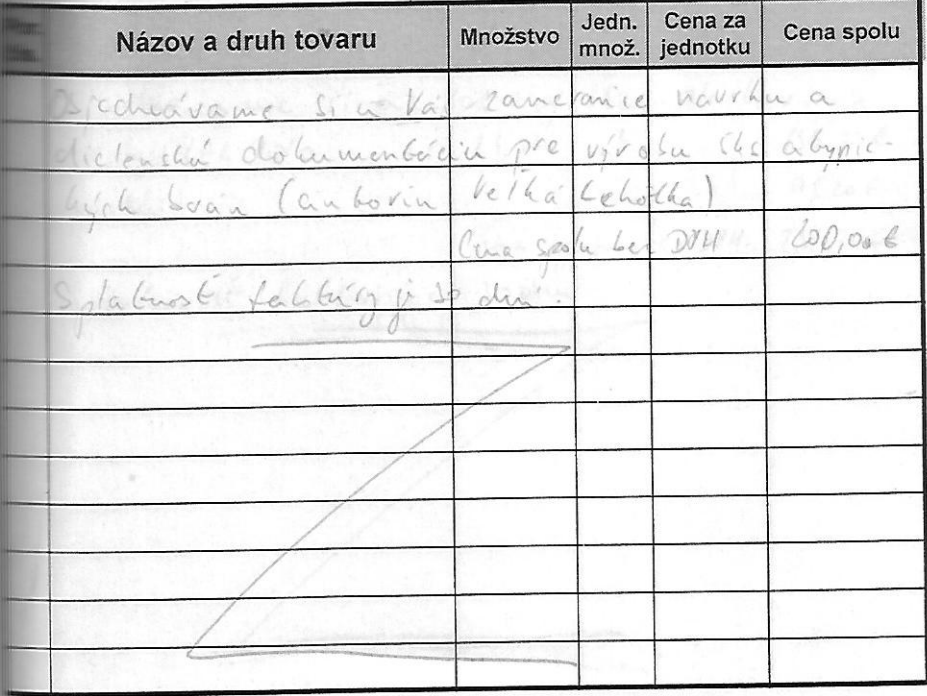 Názov a druh tovaru Množstvo Jedn. množ. Cena za jednotku Cena spolu
Objednávame si u Vás zameranie návrhu a
dielenskú dokumentáciu pre výrobu atypic-
kých brán (cintorín Veľká Lehôtka)
Cena spolu bez DPH 200,00 €
Splatnosť faktúry je dní.